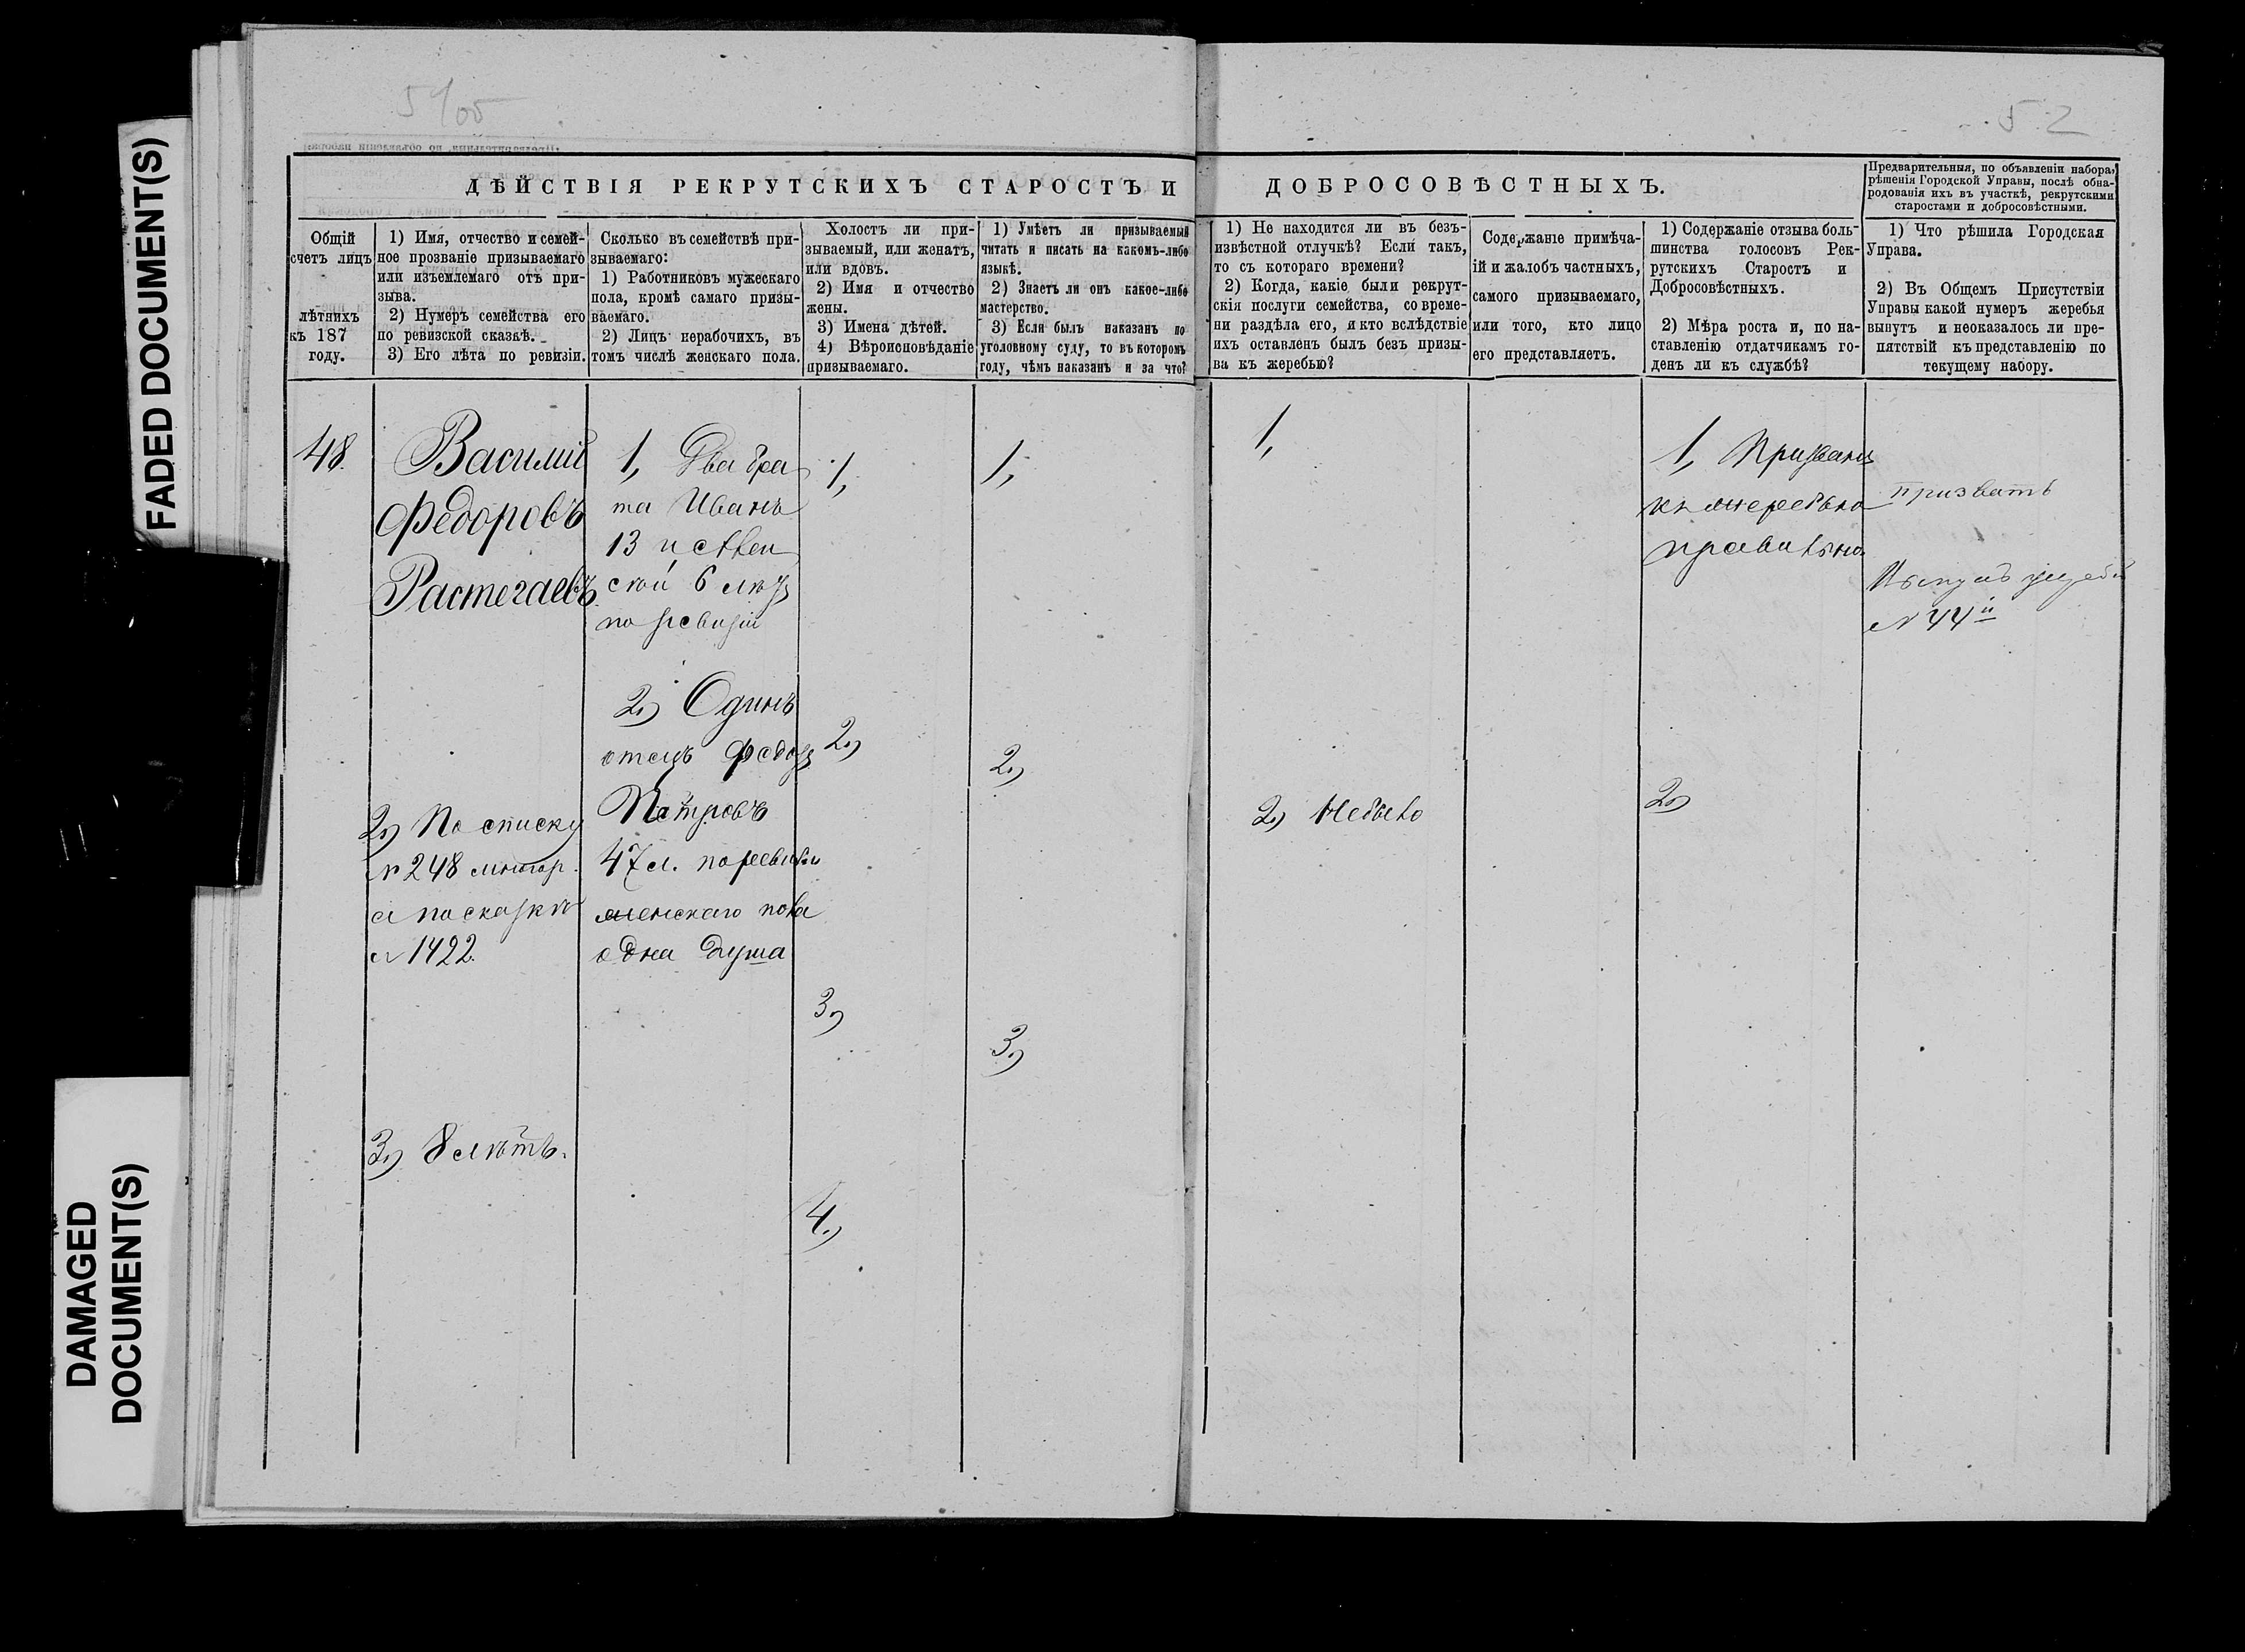 52
Предварительныя, по объявленіи набора,
рѣшенія Городской Управы, послѣ обна-
родованія ихъ въ участкѣ, рекрутскими
старостами и добросовѣстными.
ДѢЙСТВІЯ РЕКРУТСКИХЪ СТАРОСТЪ И ДОБРОСОВѢСТНЫХЪ.
Общій
счетъ лицъ
лѣтнихъ
къ 187
году.
1) Имя, отчество и семей-
ное прозваніе призываемаго
или изъемлемаго отъ при-
зыва.
2) Нумеръ семейства его
по ревизской сказкѣ.
3) Его лѣта по ревизіи.
Сколько въ семействѣ при-
зываемаго:
1) Работниковъ мужескаго
пола, кромѣ самаго призы-
ваемаго.
2) Лицъ нерабочихъ, въ
томъ числѣ женскаго пола.
Холостъ ли при-
зываемый, или женатъ,
или вдовъ.
2) Имя и отчество
жены.
3) Имена дѣтей.
4) Вѣроисповѣданіе
призываемаго.
1) Умѣетъ ли призываемый
читать и писать на какомъ-либо
языкѣ.
2) Знаетъ ли онъ какое-либо
мастерство.
3) Если былъ наказанъ по
уголовному суду, то въ которомъ
году, чѣмъ наказанъ и за что?
1) Не находится ли въ безъ-
извѣстной отлучкѣ? Если такъ,
то съ котораго времени?
2) Когда, какіе были рекрут-
скія послуги семейства, со време-
ни раздѣла его, я кто вслѣдствіе
ихъ оставленъ былъ безъ призы-
ва къ жеребью?
Содержаніе примѣча-
ій и жалобъ частныхъ,
самого призываемаго,
или того, кто лицо
его представляетъ.
1) Содержаніе отзыва боль-
шинства голосовъ Рек-
рутскихъ Старостъ и
Добросовѣстныхъ.
2) Мѣра роста и, по на-
ставленію отдатчикамъ го-
денъ ли къ службѣ?
1) Что рѣшила Городская
Управа.
2) Въ Общемъ Присутствіи
Управы какой нумеръ жеребья
вынутъ и неоказалось ли пре-
пятствій къ представленію по
текущему набору.
48.
Василій
Федоровъ
Растегаевъ
2,) По списку
№ 248
а по сказкѣ
№ 1422.
3,) 8 лѣтъ.
1, Два бра
та Иванъ
13 и
6 лѣтъ
по ревизіи
2,) Одинъ
отецъ Федоръ
Петровъ
47 л. по ревизіи
женскаго пола
одна душа
1,
2,)
3,)
4,)
1,
2,)
3,)
1,
2,) Небыло
1, Призванъ
къ жеребью
правильно.
2,)
призвать
№ 44й